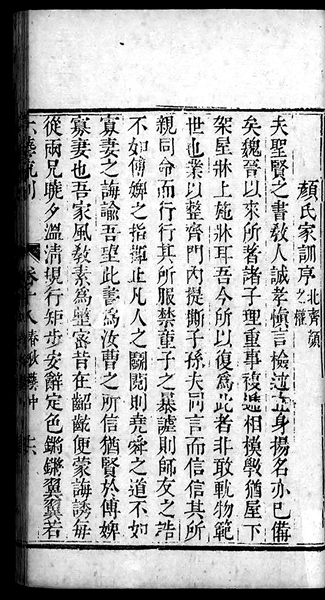 顏氏家訓序 北齊顏之推
夫聖賢之書教人誠孝慎言檢迹立身揚名亦已備
矣魏晉以來所著諸子理重事複遞相模斆猶屋下
架屋牀上施牀耳吾今所以復爲此者非敢軌物範
世也業以整齊門內提撕子孫夫同言而信信其所
親同命而行行其所服禁童子之暴謔則師友之誥
不如傅婢之指揮止凡人之鬬鬩則堯舜之道不如
寡妻之誨諭吾望此書爲汝曹之所信猶賢於傅婢
寡妻也吾家風教素爲整密昔在齠齔便蒙誨誘每
從兩兄曉夕溫凊規行矩步安辭定色鏘鏘翼翼若
六藝流別 卷十八 春秋